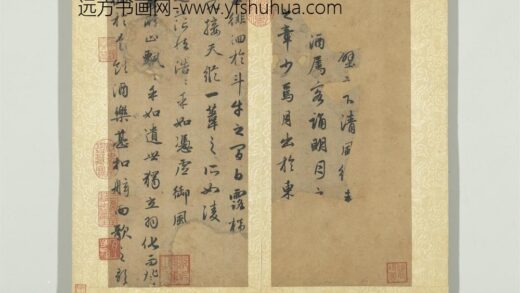 远方书画网-www.yfshuhua.com
壁之下清風徐来
酒属客誦明月之
之章少焉月出於東
徘徊於斗牛之間白露橫
接天縱一葦之所如凌
浩浩乎如憑虚御風
飄飄乎如遺世獨立羽化而
於是飲酒樂甚扣舷而歌之歌